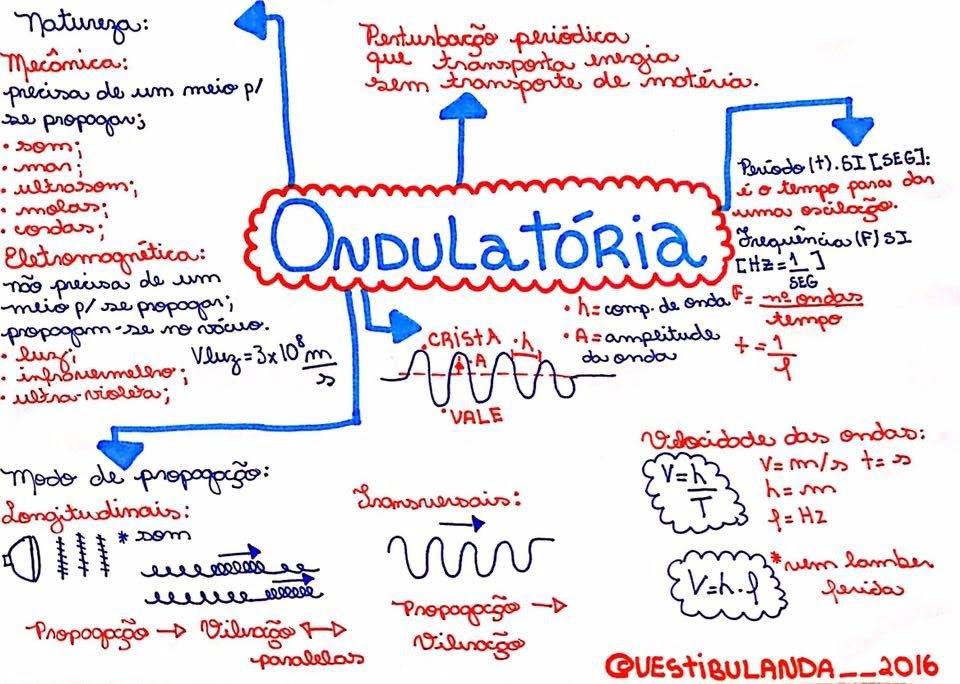 Natureza:
Mecânica:
precisa de um meio p/
se propagar;
• som;
• mar;
• ultrasom;
• molas;
• cordas;
Eletromagnética:
não precisa de um
meio p/ se propagar;
propagam-se no vácuo.
• luz;
• infravermelho;
• ultra-violeta;
Vluz = 3x10⁸ m/s
Perturbação periódica
que transporta energia
sem transporte de matéria.
ONDULATÓRIA
Período (t). SI [SEG]:
é o tempo para dar
uma oscilação.
Frequência (F) SI
[Hz = 1/SEG]
F = nº ondas/tempo
t = 1/f
• h = comp. de onda
• A = amplitude
da onda
CRISTA
• h
• A
• VALE
Modo de propagação:
Longitudinais:
* som
Propagação → Vibração ↔
paralelas
Transversais:
Propagação →
Vibração
Velocidade das ondas:
V = h/T
V = m/s t = s
h = m
f = Hz
V = h . f
* vem lamber
ferida
@VESTIBULANDA__2016